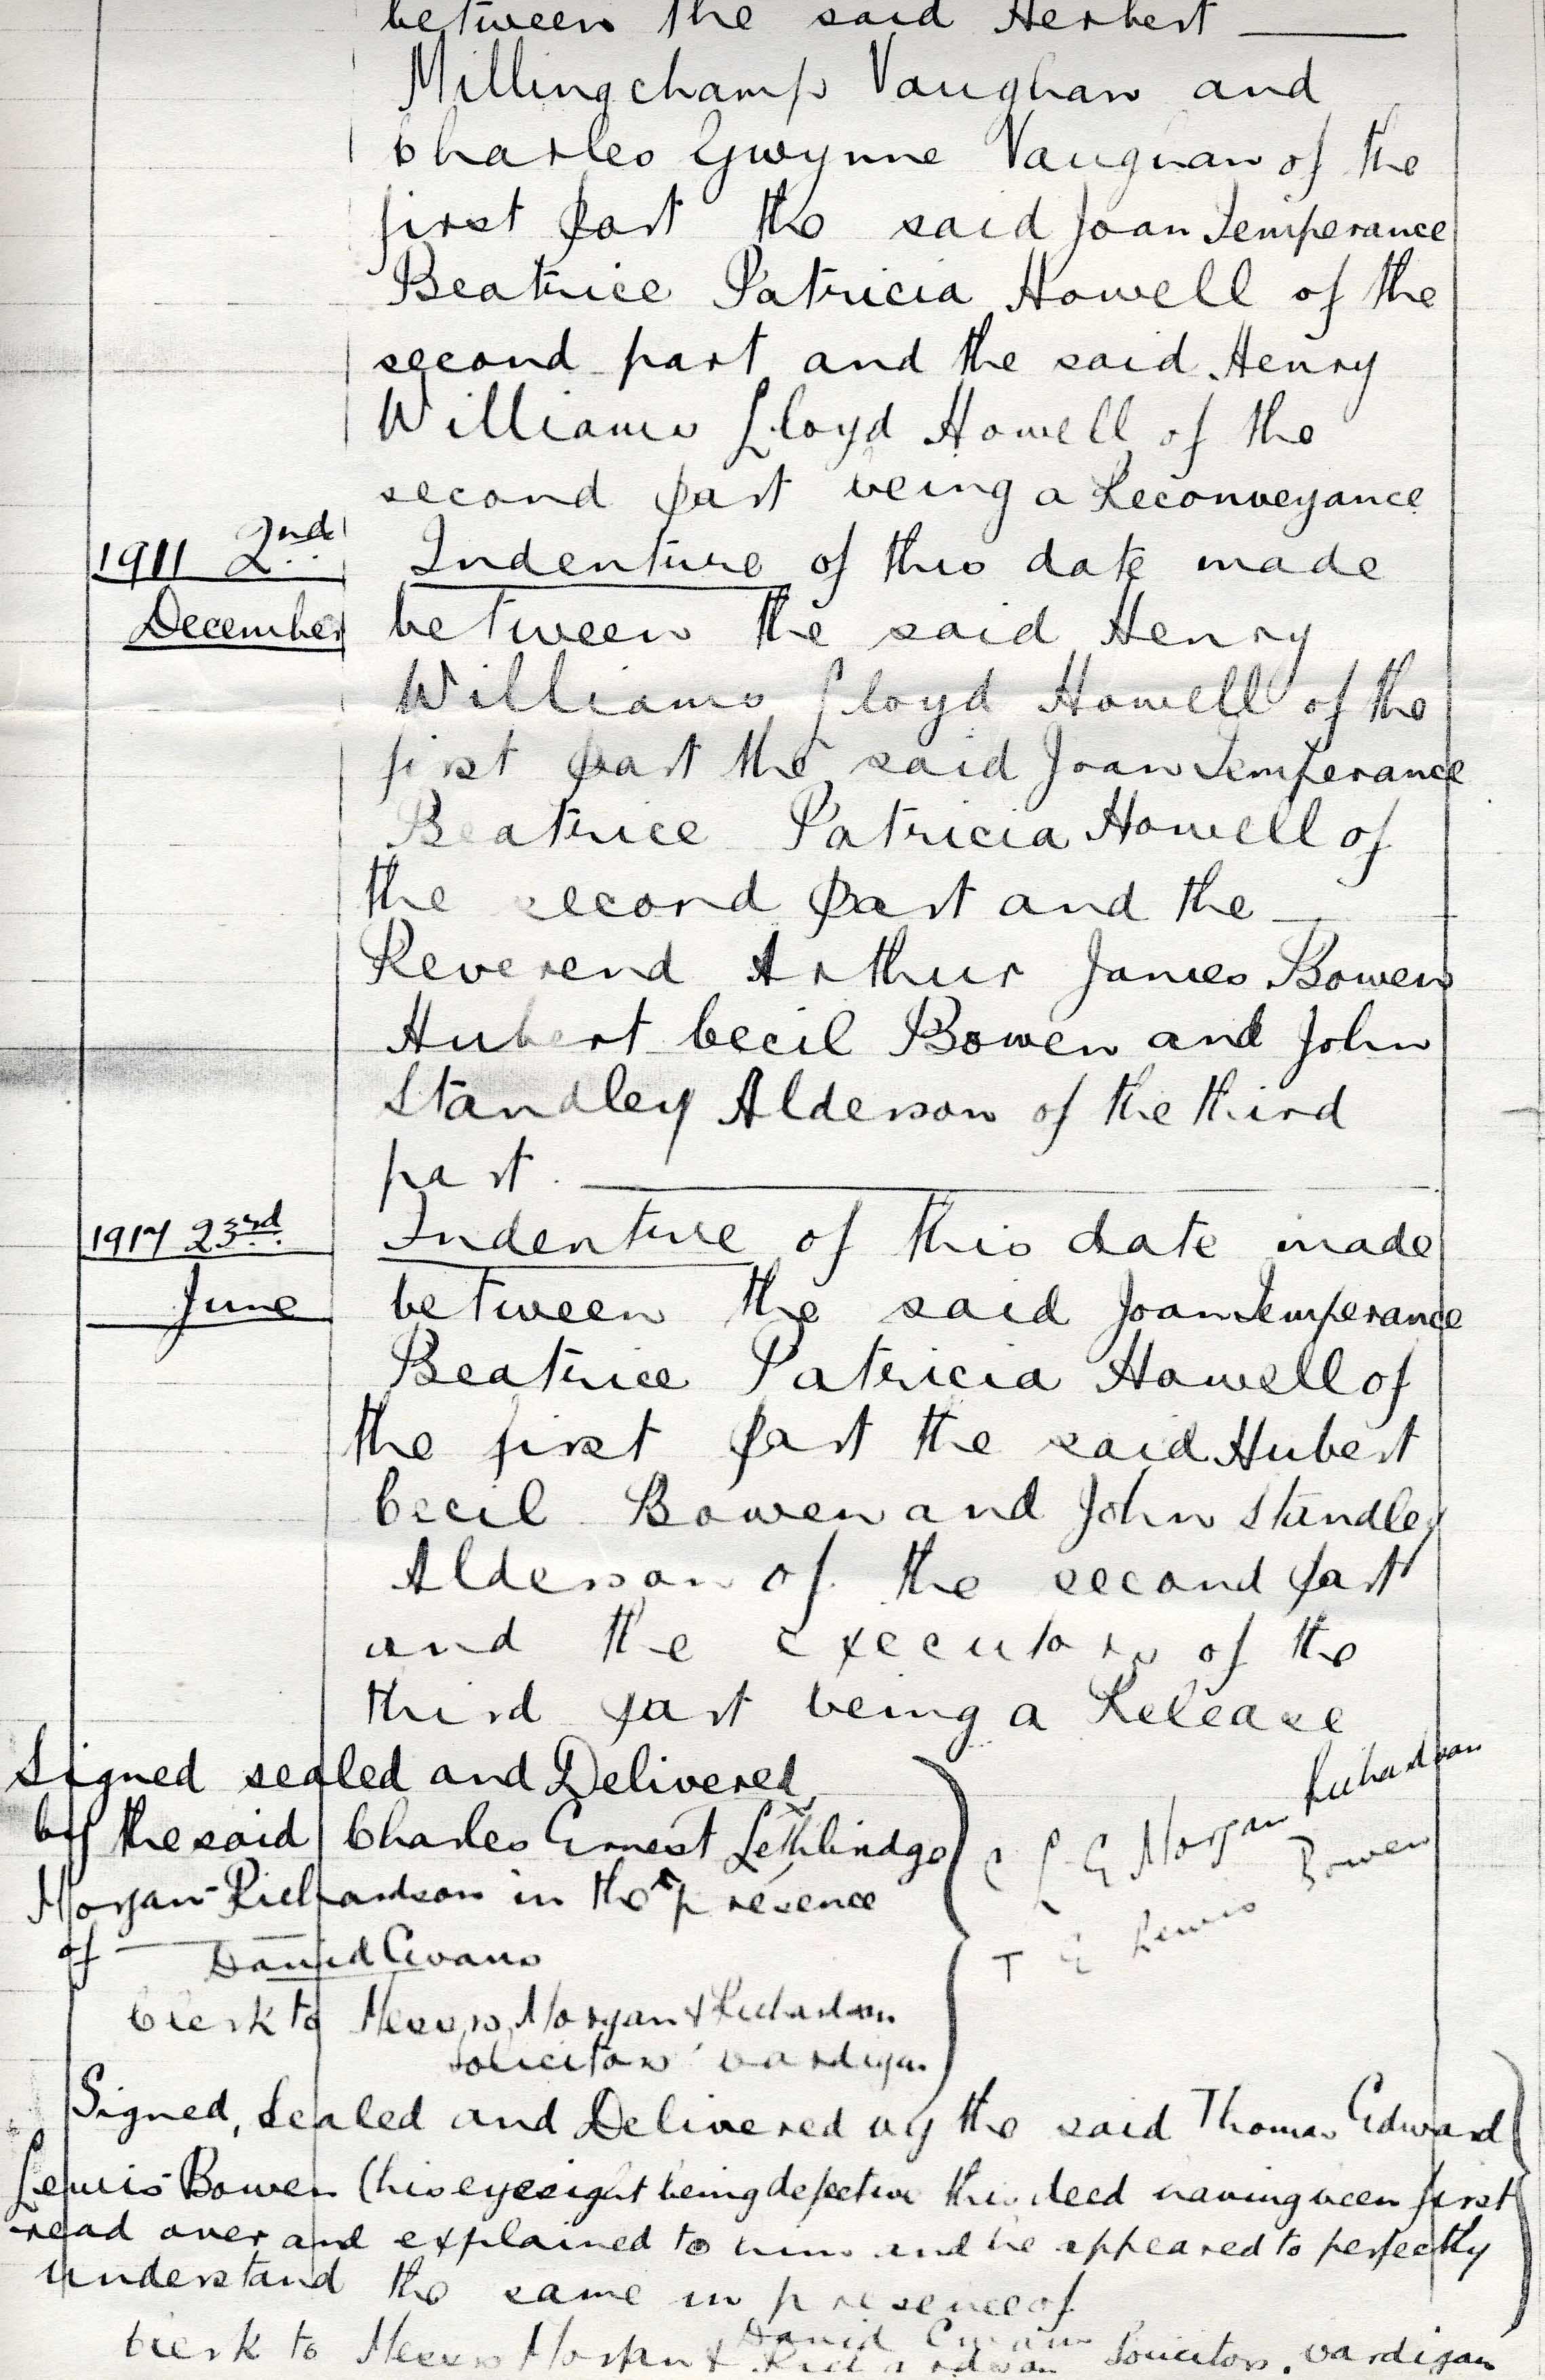 between the said Herbert
Millingchamp Vaughan and
Charles Gwynne Vaughan of the
first part the said Joan Temperance
Beatrice Patricia Howell of the
second part and the said Henry
Williams Lloyd Howell of the
second part being a Reconveyance
1911 2nd Indenture of this date made
December between the said Henry
Williams Lloyd Howell of the
first part the said Joan Temperance
Beatrice Patricia Howell of
the second part and the
Reverend Arthur James Bowen
Hubert Cecil Bowen and John
Standley Alderson of the third
part.
1917 23rd Indenture of this date made
June between the said Joan Temperance
Beatrice Patricia Howell of
the first part the said Hubert
Cecil Bowen and John Standley
Alderson of the second part
and the executors of the
third part being a Release
Signed sealed and Delivered
by the said Charles Ernest Lethbridge
Morgan-Richardson in the presence
of David Evans
Clerk to Messrs Morgan & Richardson
Solicitors Cardigan
C L E Morgan Richardson
T E Lewis Bowen
Signed, Sealed and Delivered by the said Thomas Edward
Lewis-Bowen (his eyesight being defective this deed having been first
read over and explained to him and he appeared to perfectly
understand the same in presence of
David Evans
Clerk to Messrs Morgan & Richardson Solicitors, Cardigan